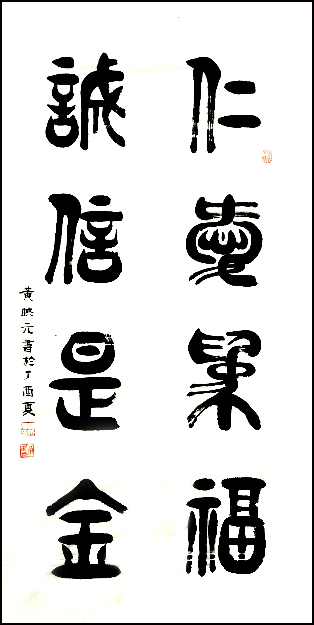 仁愛福
誠信是金
黄映元書於丁酉夏